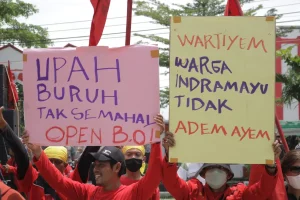 UPAH
BURUH
TAK SEMAHAL
OPEN B.O!
WARTIYEM
WARGA
INDRAMAYU
TIDAK
ADEM AYEM